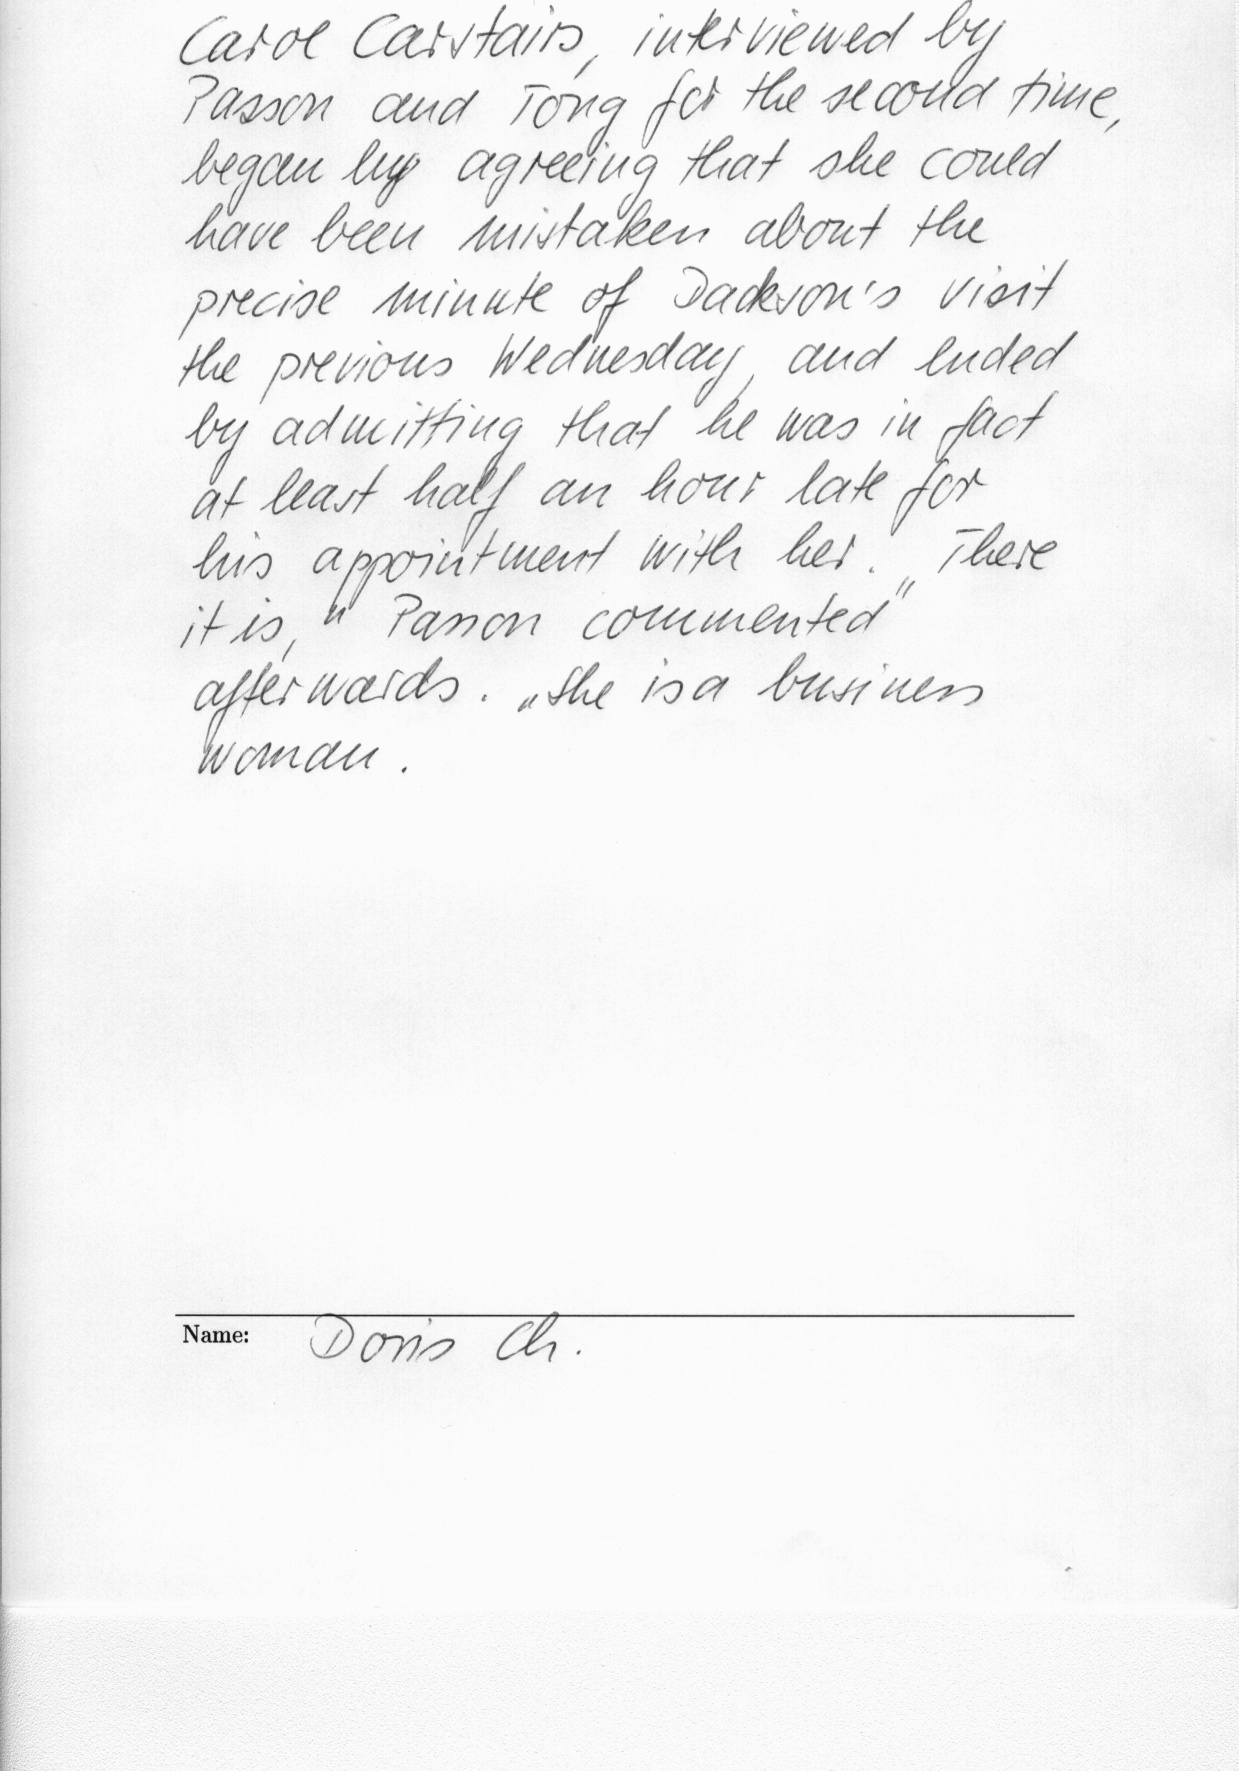 Carol Carstairs, interviewed by
Passon and Tong for the second time,
began by agreeing that she could
have been mistaken about the
precise minute of Dackson's visit
the previous Wednesday, and ended
by admitting that he was in fact
at least half an hour late for
his appointment with her. „There
it is," Passon commented"
afterwards. „She is a business
woman.
Name: Doris Ch.